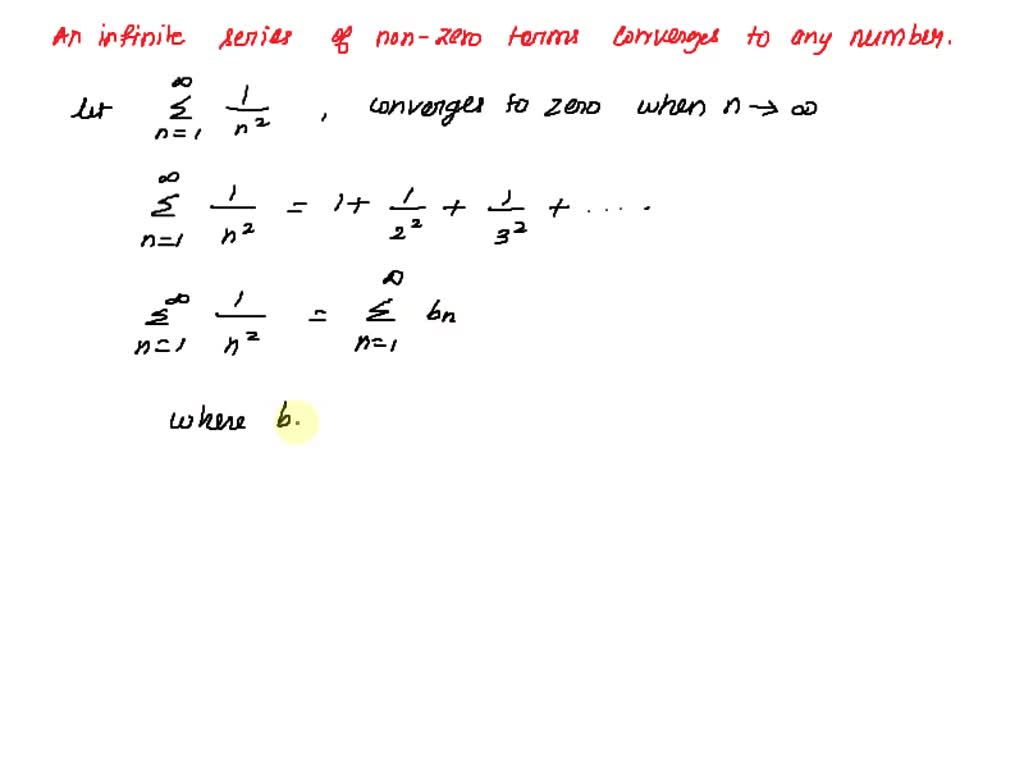 An infinite series of non-zero terms converges to any number.
let ∞ Σ n=1 1/n² , converges to zero when n → ∞
∞ Σ n=1 1/n² = 1 + 1/2² + 1/3² + .....
∞ Σ n=1 1/n² = ∞ Σ n=1 bn
where b.